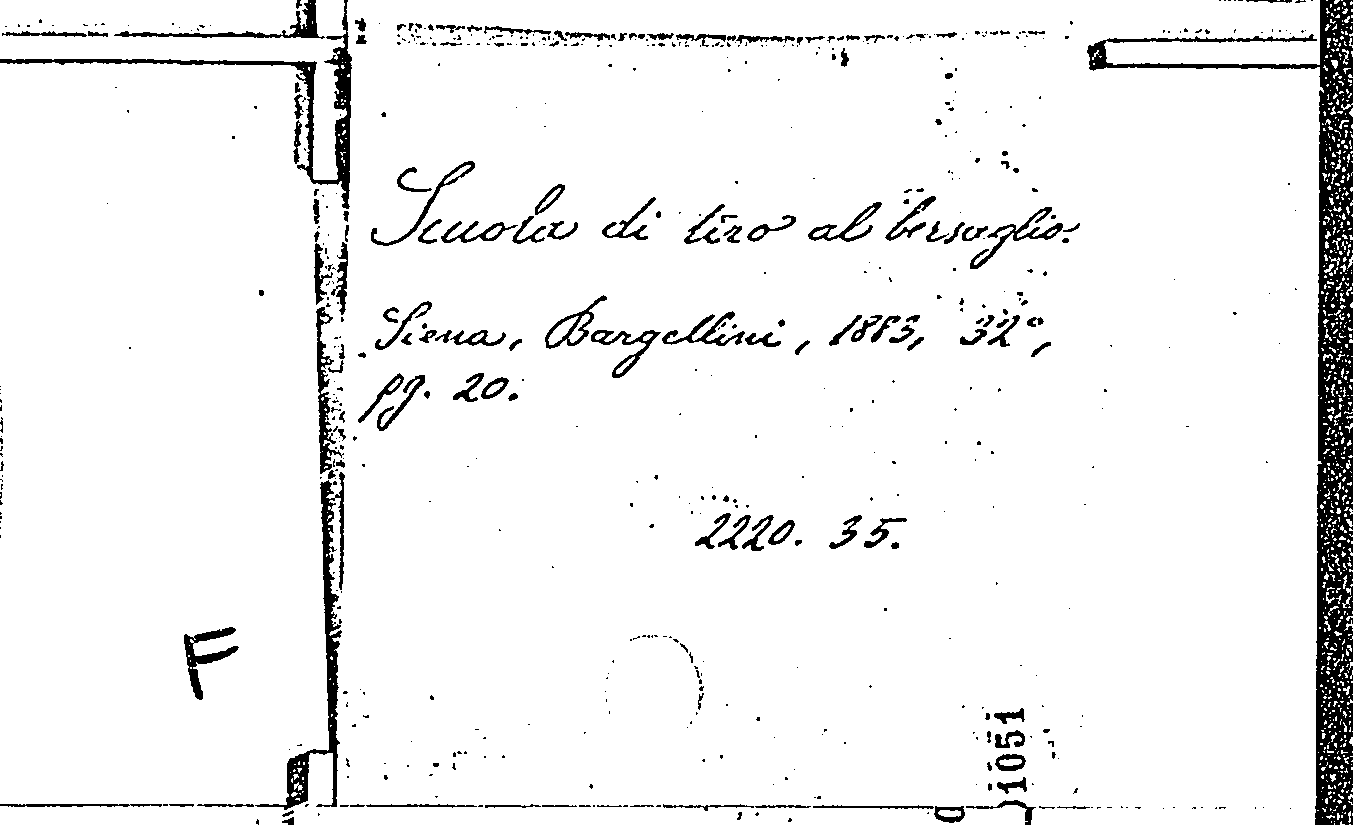 Scuola di tiro al bersaglio.
Siena, Bargellini, 1883, 32°,
pg. 20.
2220. 35.
F
1051